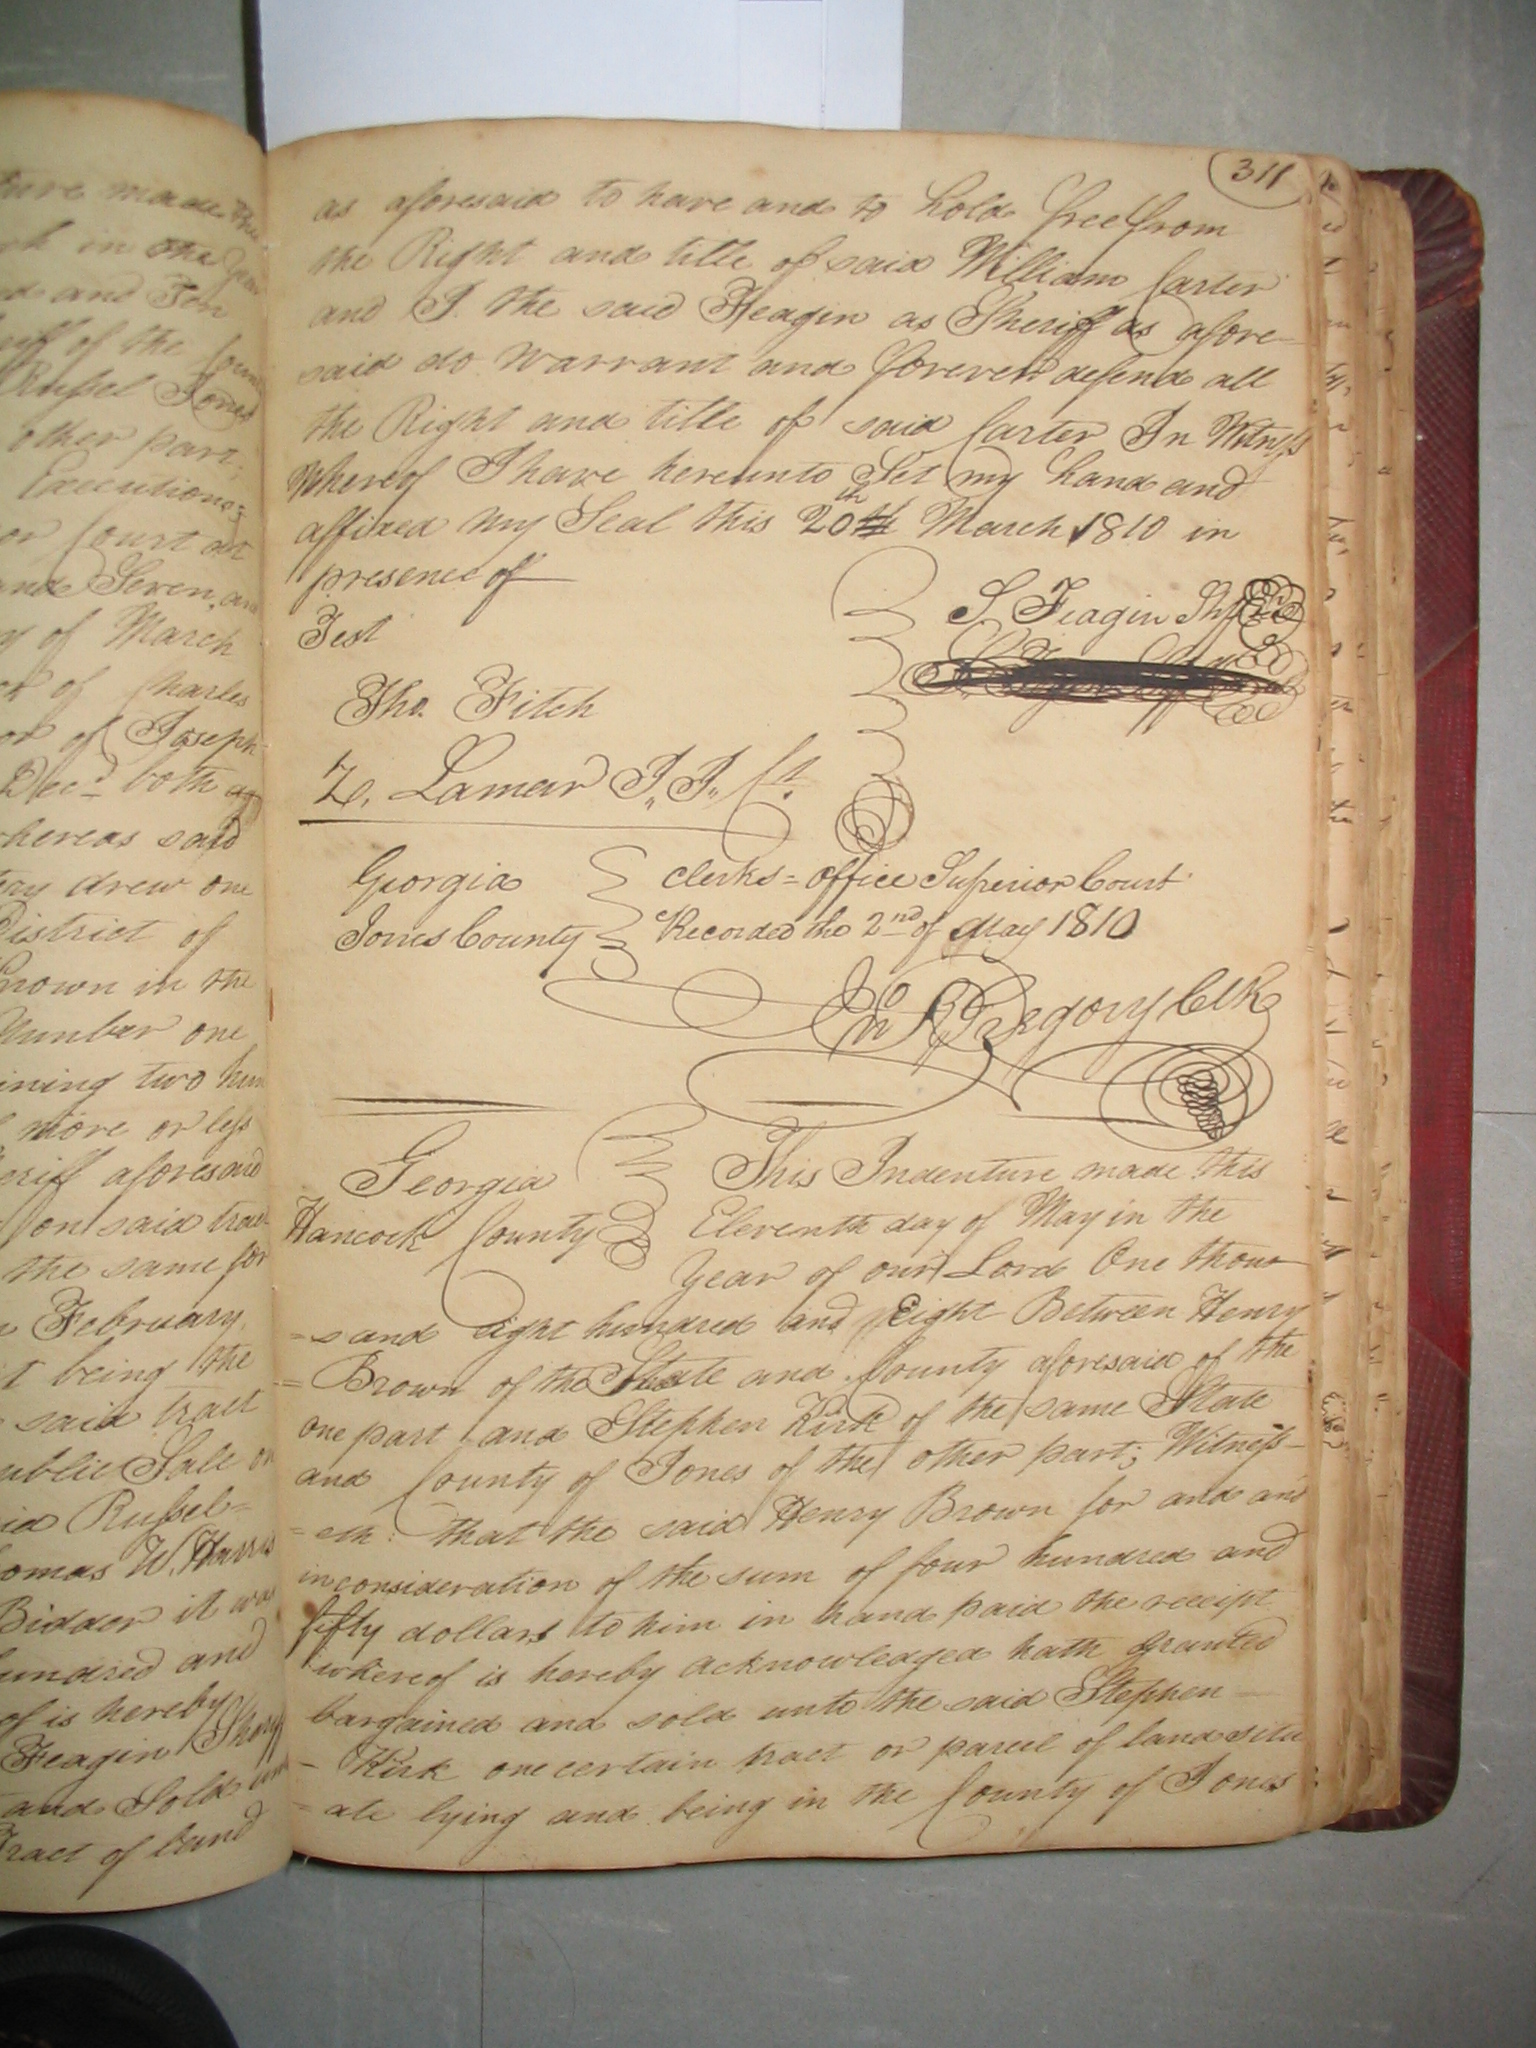 ture made this
in the Year
and Ten
of the Coun
Russel Jones
other part,
Executions
Court at
and Seven, an
of March
of Charles
of Joseph
Decd. both
whereas said
drew one
District of
known in the
Number one
ining two hun
more or less
eriff aforesaid
on said trac
the same for
February,
being the
said tract
ublic Sale on
Russel=
omas W. Harris
Bidder it was
undred and
of is hereby
Feagin Sheriff
and Sold
Tract of land
311
as aforesaid to have and to hold free from
the Right and title of said William Carter
and I. the said Feagin as Sheriff as afore-
said do warrant and forever defend all
the Right and title of said Carter In Witness
Whereof I have hereunto Set my hand and
affixed my Seal this 20th March 1810 in
presence of
S. Feagin Shff
Test
Tho. Fitch
Z. Lamar J. J. Ct.
Georgia
Jones County
Clerks=office Superior Court
Recorded the 2nd of May 1810
Gregory Clk
Georgia
Hancock County
This Indenture made this
Eleventh day of May in the
Year of our Lord One thou
=sand eight hundred and Eight Between Henry
= Brown of the State and County aforesaid of the
one part and Stephen Kirk of the same State
and County of Jones of the other part; Witness-
=eth: that the said Henry Brown for and and
in consideration of the sum of four hundred and
fifty dollars to him in hand paid the receipt
whereof is hereby acknowledged hath granted
bargained and sold unto the said Stephen -
- Kirk one certain tract or parcel of land situ
= ate lying and being in the County of Jones